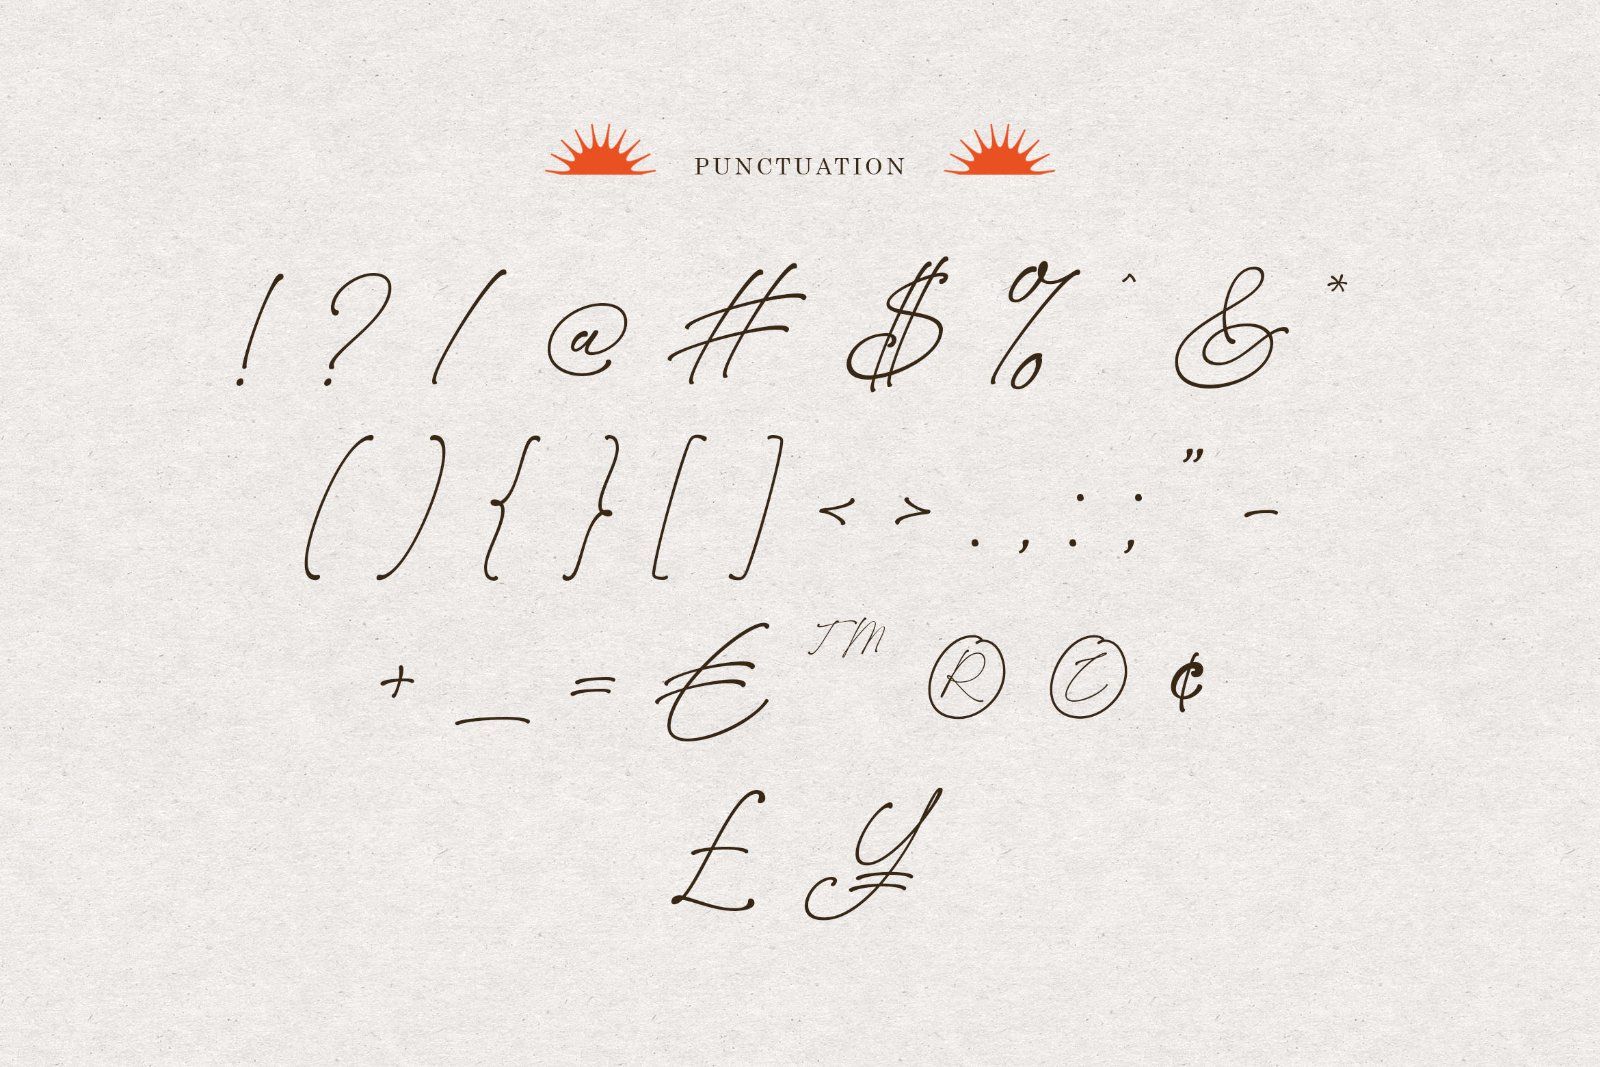 PUNCTUATION
! ? / @ # $ % ^ & *
( ) { } [ ] < > . , : ; ” -
+ _ = € ™ ® © ¢
£ ¥